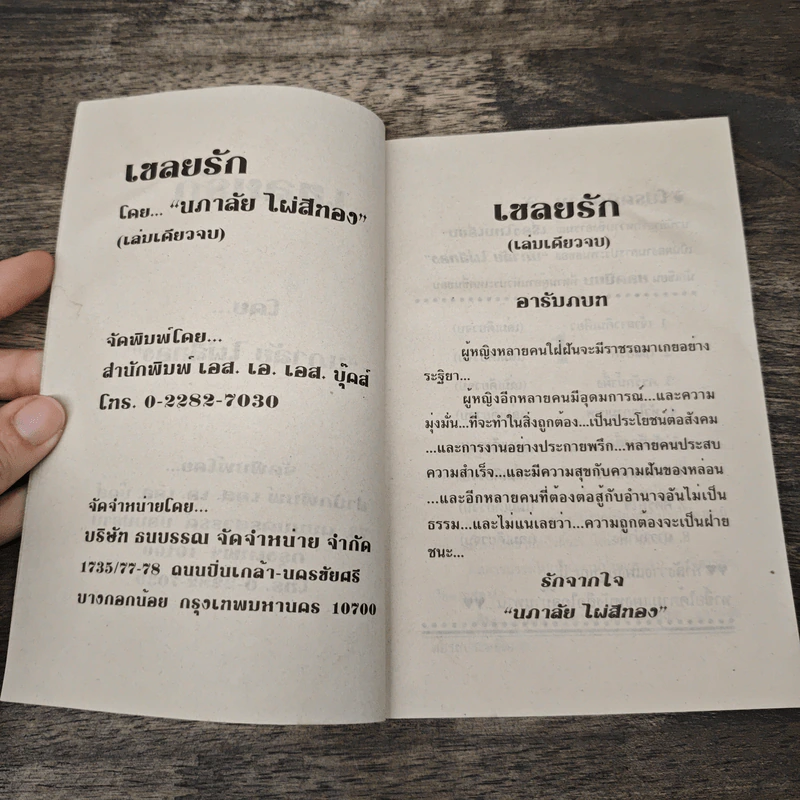 เชลยรัก
โดย... “นภาลัย ไผ่สีทอง”
(เล่มเดียวจบ)
จัดพิมพ์โดย...
สำนักพิมพ์ เอส. เอ. เอส. บุ๊คส์
โทร. 0-2282-7030
จัดจำหน่ายโดย...
บริษัท ธนบรรณ จัดจำหน่าย จำกัด
1735/77-78 ถนนปิ่นเกล้า-นครชัยศรี
บางกอกน้อย กรุงเทพมหานคร 10700
เชลยรัก
(เล่มเดียวจบ)
อารัมภบท
ผู้หญิงหลายคนใฝ่ฝันจะมีราชรถมาเกยอย่าง
ระฐิยา...
ผู้หญิงอีกหลายคนมีอุดมการณ์...และความ
มุ่งมั่น...ที่จะทำในสิ่งถูกต้อง...เป็นประโยชน์ต่อสังคม
...และการงานอย่างประกายพรึก...หลายคนประสบ
ความสำเร็จ...และมีความสุขกับความฝันของหล่อน
...และอีกหลายคนที่ต้องต่อสู้กับอำนาจอันไม่เป็น
ธรรม...และไม่แน่เลยว่า...ความถูกต้องจะเป็นฝ่าย
ชนะ...
รักจากใจ
“นภาลัย ไผ่สีทอง”